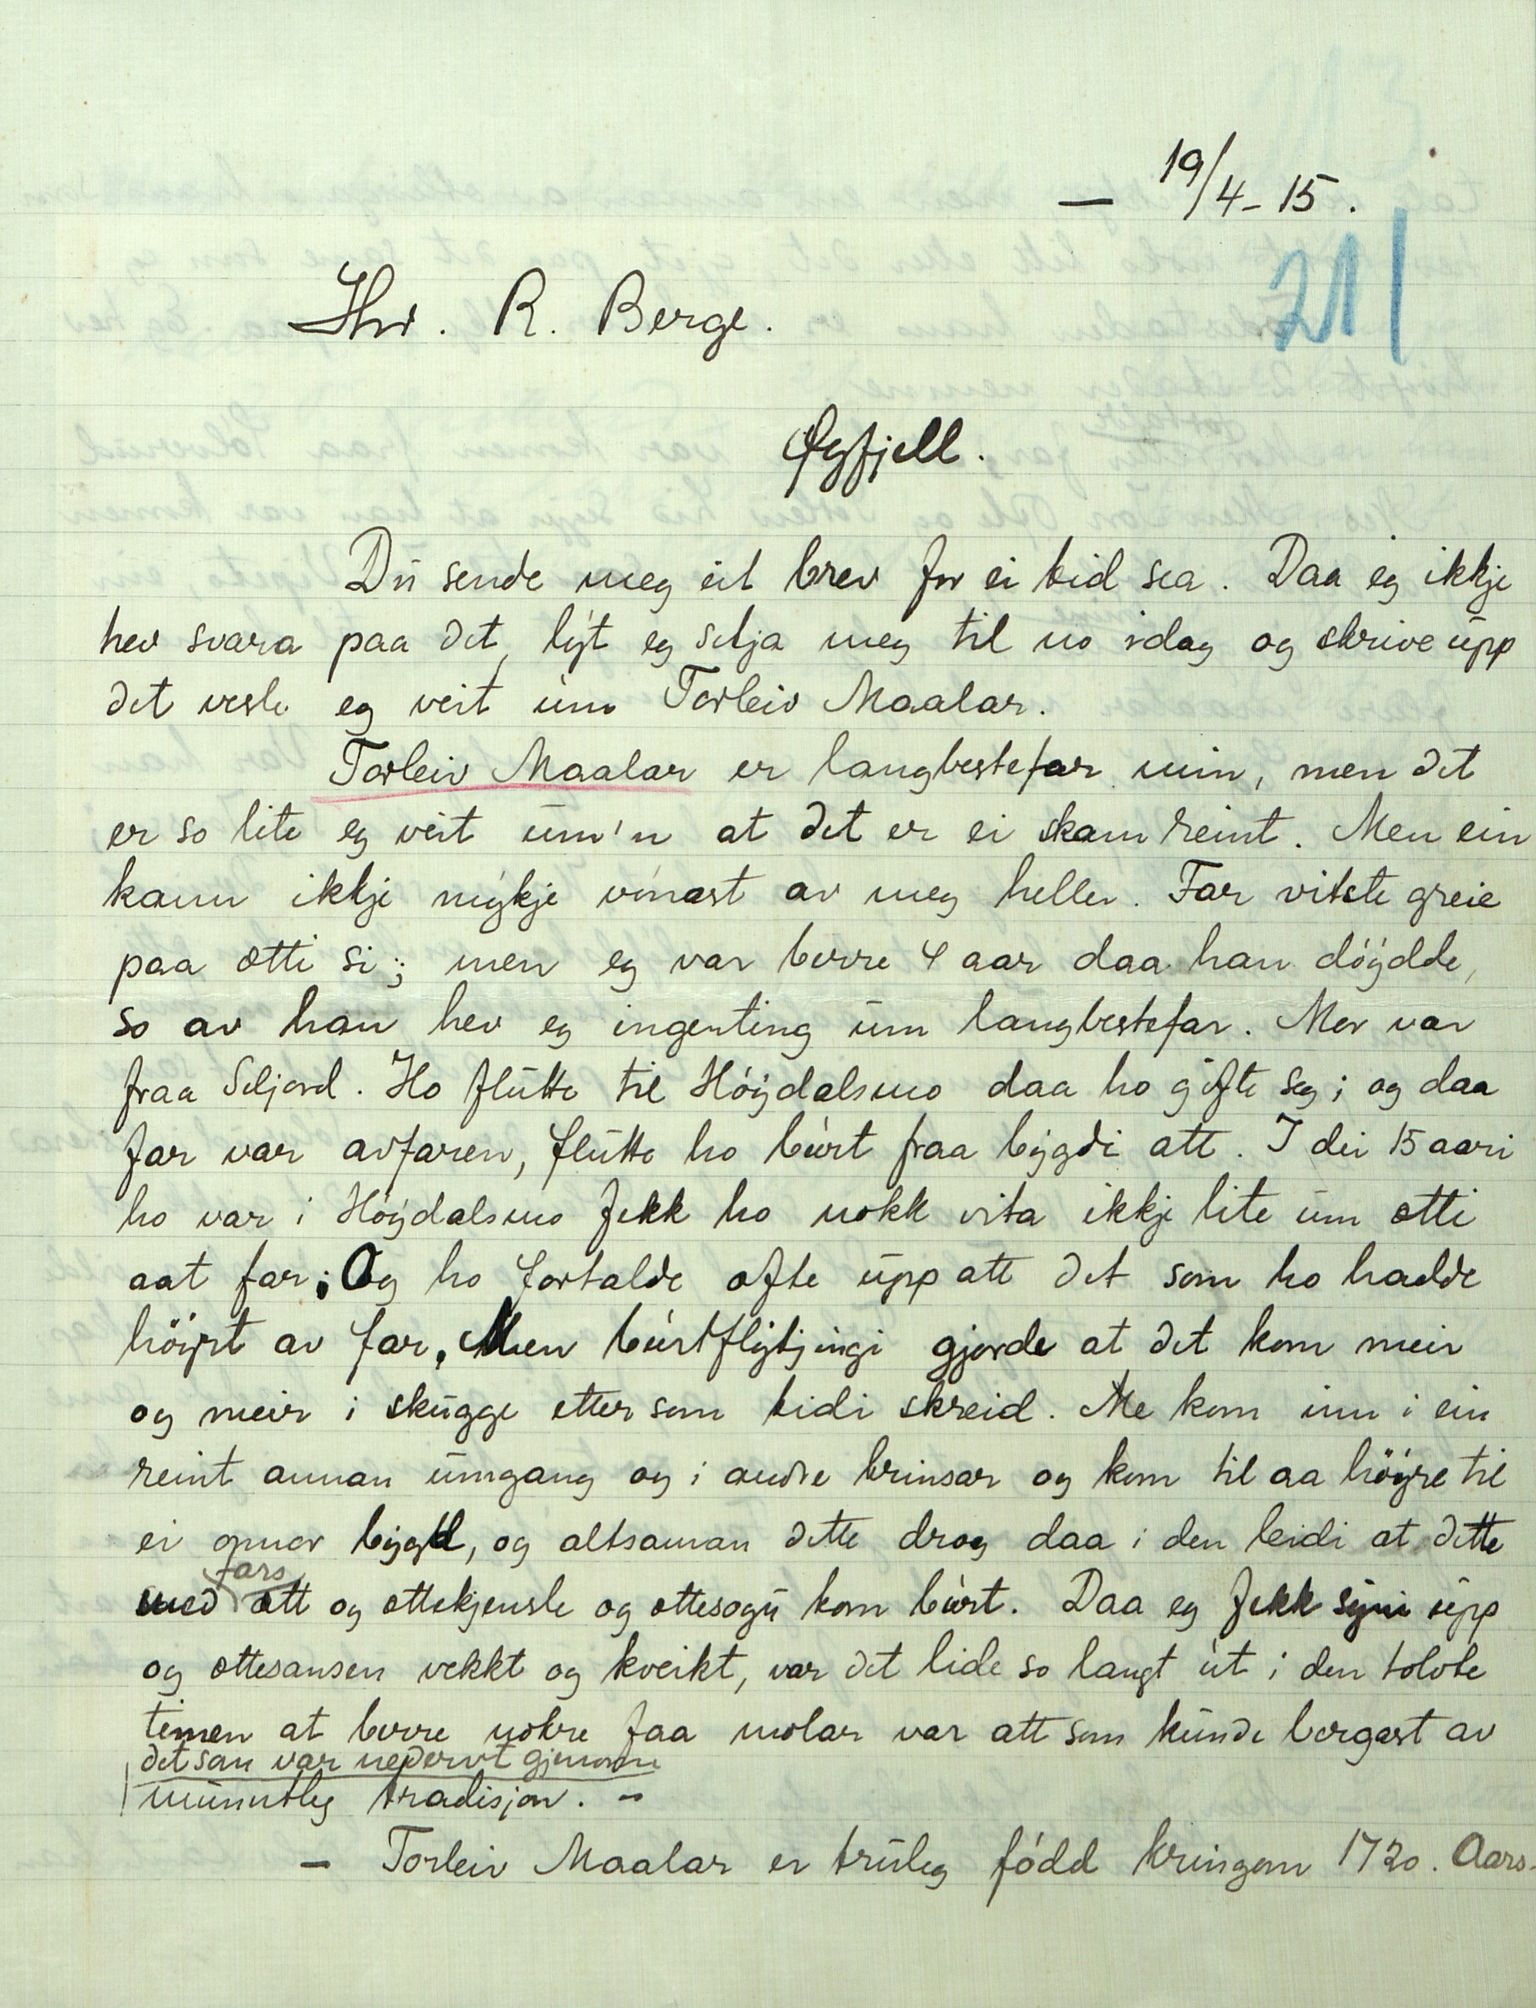 — 19/4 - 15.
211
Hr. R. Berge.
Øyfjell.
Du sende meg eit brev for ei tid sea. Daa eg ikkje
hev svara paa det, lyt eg setja meg til no idag og skrive upp
det vesle eg veit um Torleiv Maalar.
Torleiv Maalar er langbestefar min, men det
er so lite eg veit um'n at det er ei skam reint. Men ein
kann ikkje mykje vónast av meg heller. Far visste greie
paa ætti si; men eg var berre 4 aar daa han döydde,
so av han hev eg ingenting um langbestefar. Mor var
fraa Seljord. Ho flutte til Höydalsmo daa ho gifte seg; og daa
far var avfaren, flutte ho burt fraa bygdi att. I dei 15 aari
ho var i Höydalsmo fekk ho nokk vita ikkje lite um ætti
aat far; Og ho fortalde ofte upp att det som ho hadde
höyrt av far. Men burtflytjingi gjorde at det kom meir
og meir i skugge etter som tidi skreid. Me kom inn i ein
reint annan umgang og i andre krinsar og kom til aa höyre til
ei onnor bygd, og altsaman dette drog daa i den leidi at dette
fars
med ætt og ættekjensle og ættesogu kom burt. Daa eg fekk syni upp
og ættesansen vekkt og kveikt, var det lide so langt ut i den tolvte
timen at berre nokre faa molar var att som kunde bergast av
det som var nedervt gjenom
munntleg tradisjon. —
— Torleiv Maalar er truleg född kringom 1720. Aars-